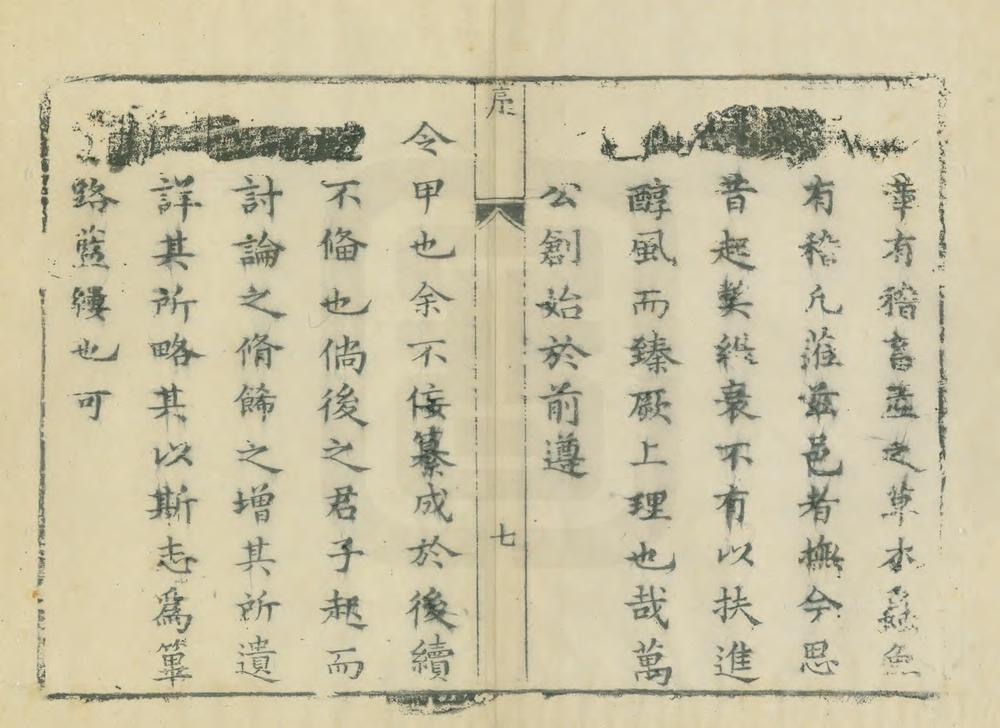 華有稽畜產之草木蟲魚
有稽凡蒞茲邑者撫今思
昔起獘維衰不有以扶進
醇風而臻厥上理也哉萬
公創始於前遵
序
七
令甲也余不侫纂成於後續
不偹也倘後之君子起而
討論之脩餙之增其所遺
詳其所略其以斯志爲篳
路藍縷也可